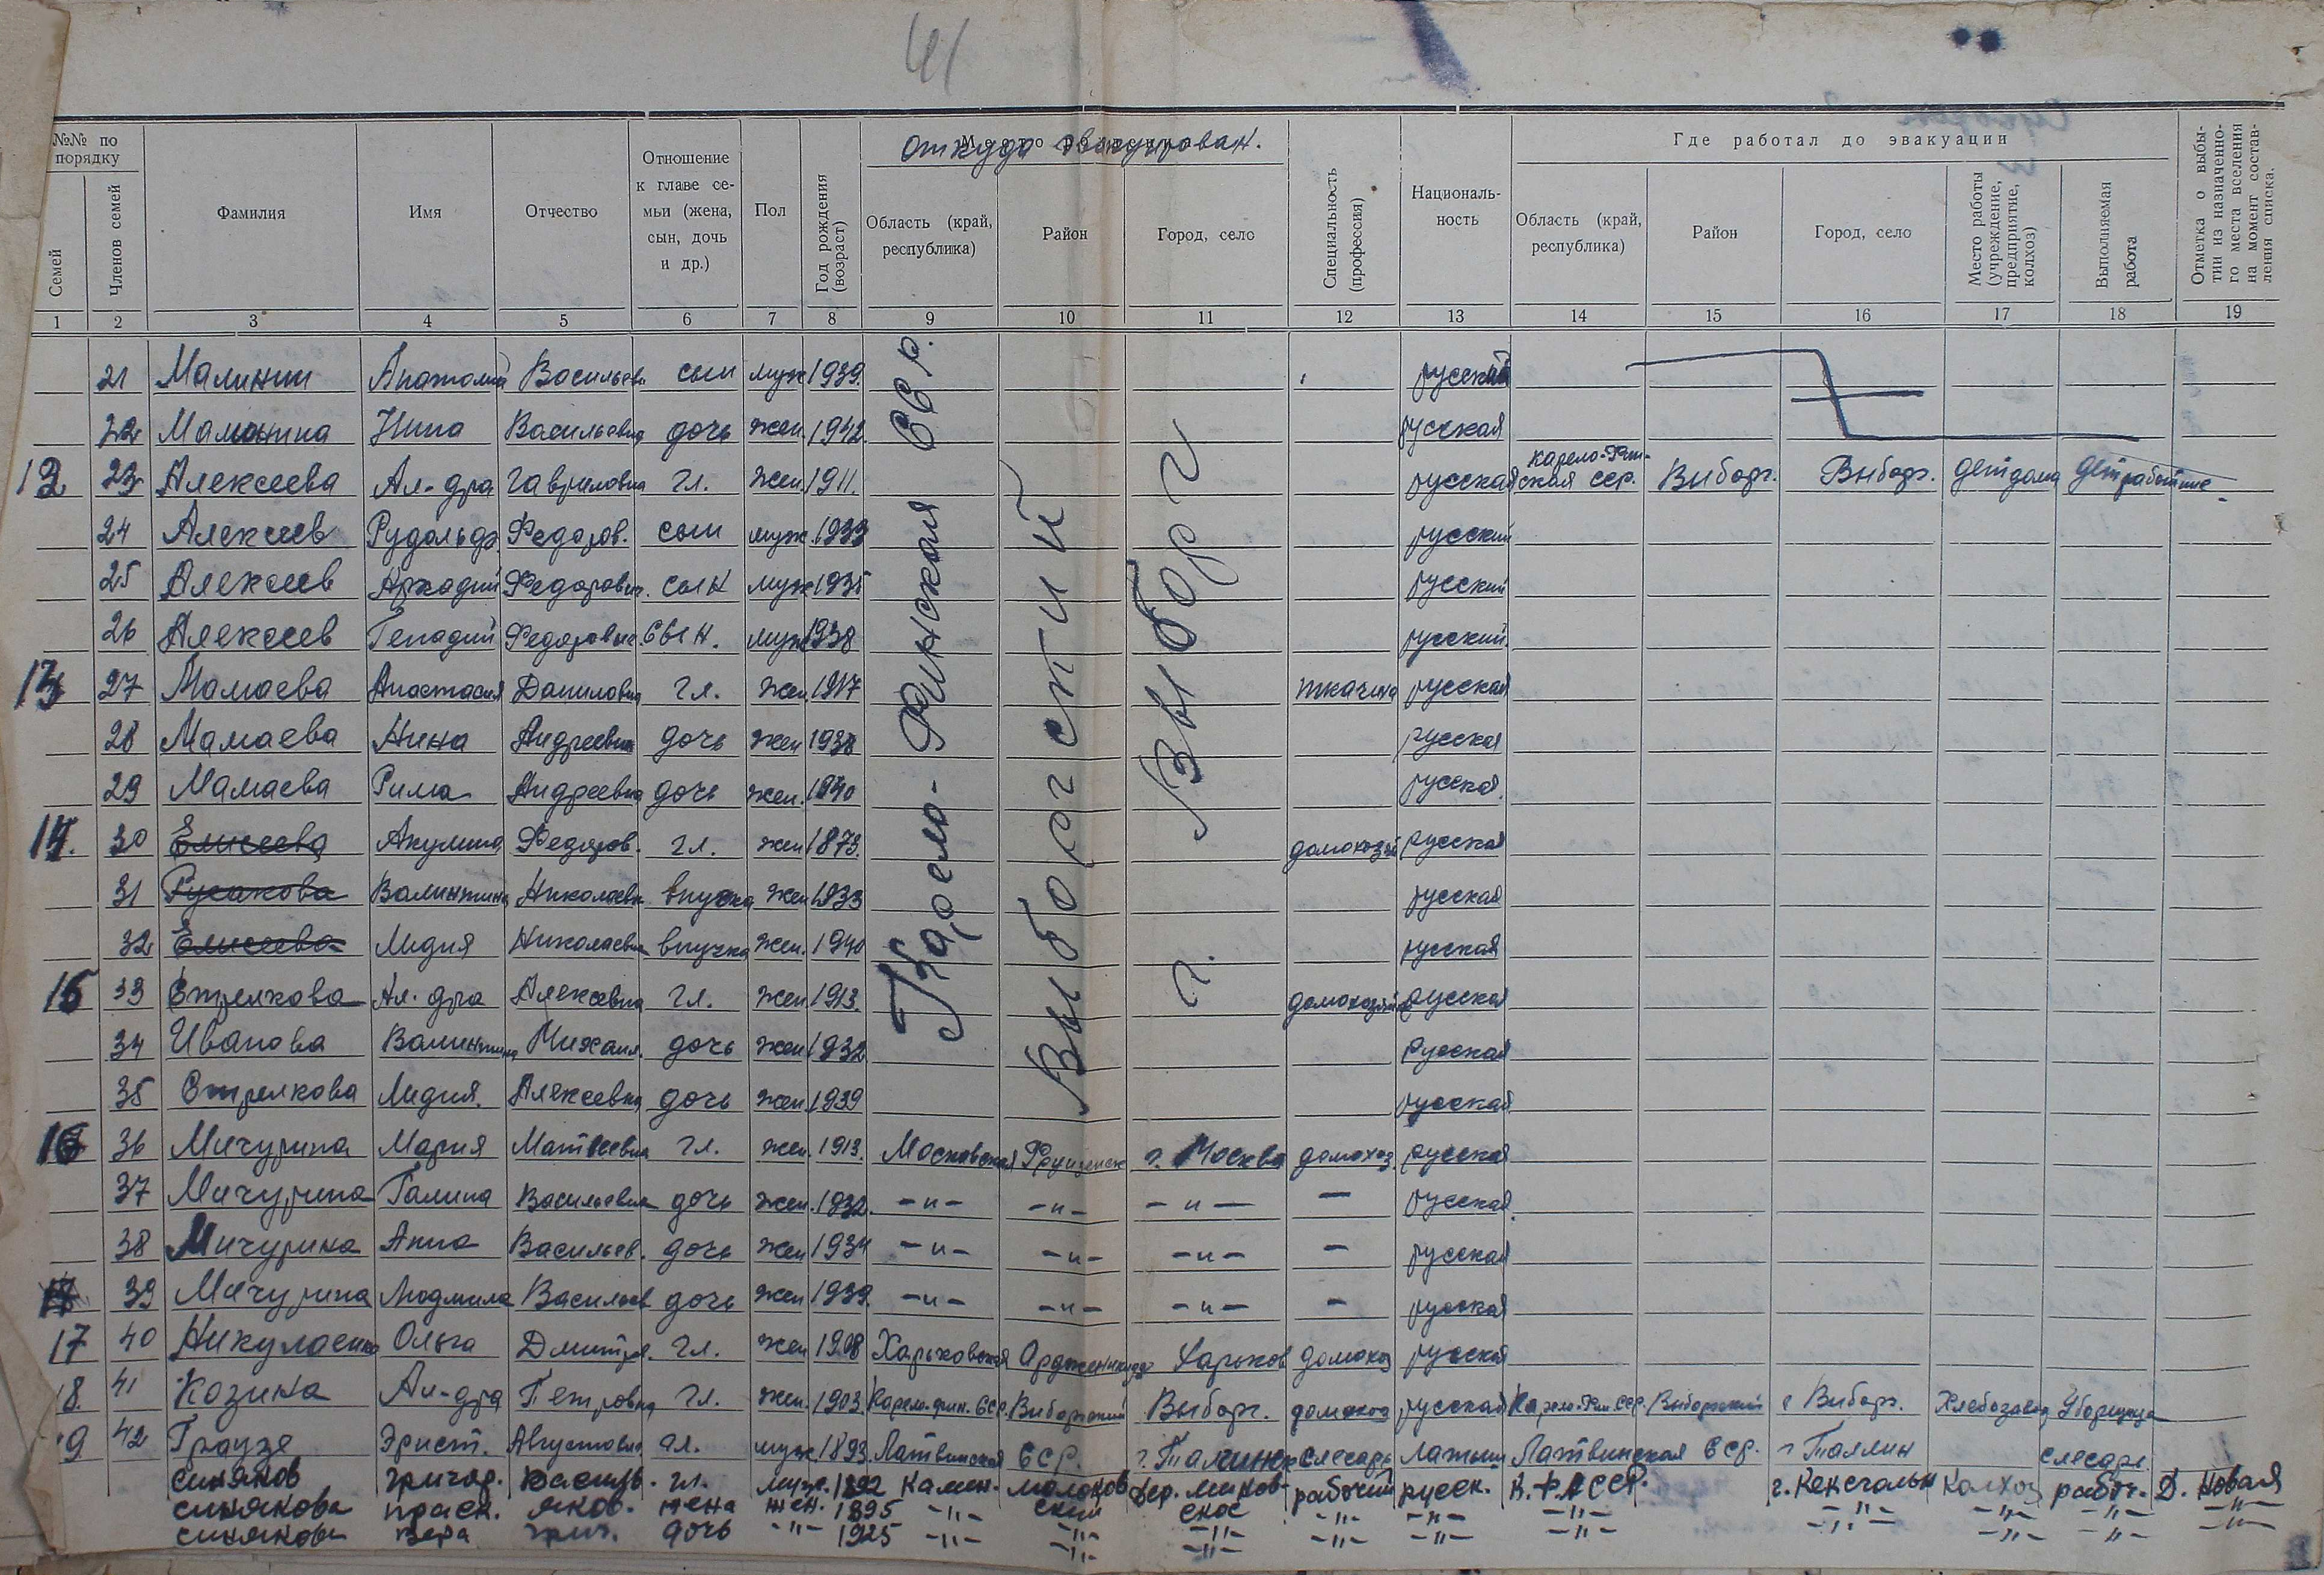 41
№№ по порядку
Семей
Членов семей
Фамилия
Имя
Отчество
Отношение к главе семьи (жена, сын, дочь и др.)
Пол
Год рождения (возраст)
откуда эвакуирован.
Область (край, республика)
Район
Город, село
Специальность (профессия)
Националь-ность
Где работал до эвакуации
Область (край, республика)
Район
Город, село
Место работы (учреждение, предприятие, колхоз)
Выполняемая работа
Отметка о выбы-тии из назначенно-го места вселения на момент состав-ления списка.
1 2 3 4 5 6 7 8 9 10 11 12 13 14 15 16 17 18 19
Карело-Финская ССр.
Выборгский
г. Выборг
21 Малинин Анатолий Васильеви сын муж 1939. русский
22 Малинина Нина Васильевна дочь жен. 1942. русская
12 23 Алексеева Ал-дра Гавриловна гл. жен. 1911. русская Карело-Фин-ская ССР. Выборг. Выборг. детдома детработние
24 Алексеев Рудольф Федоров. сын муж. 1933 русский
25 Алексеев Аркадий Федорович. сын муж 1935 русский
26 Алексеев Генадий Федорович. сын. муж 1938 русский.
13 27 Мамаева Анастасия Даниловна гл. жен. 1917 ткачиха русская
28 Мамаева Нина Андреевна дочь жен 1938 русская
29 Мамаева Рима Андреевна дочь жен. 1940 русская.
14. 30 Елисеева Акулина Федоров. гл. жен 1873. домохозяй русская
31 Русакова Валинтина Николаевн. внучка жен 1933 русская
32 Елисеева Лидия Николаевна внучка жен. 1940 русская
15 33 Стрелкова Ал-дра Алексеевна гл. жен 1913. домохозяйк русская
34 Иванова Валинтина Михаил. дочь жен 1932 русская
35 Стрелкова Лидия. Алексеевна дочь жен. 1939 русская
16 36 Мичурина Мария Матвеевна гл. жен. 1913. Московская Фрунзенск г. Москва домохоз. русская
37 Мичурина Галина Васильевна дочь жен. 1932. -"- -"- -"- — русская.
38 Мичурина Анна Васильев. дочь жен 1934 -"- -"- -"- — русская
39 Мичурина Людмила Васильев дочь жен 1939. -"- -"- -"- — русская
17 40 Никулаенко Ольга Дмитр. гл. жен 1908 Харьковская Орджоникидз Харьков домохоз русская
18. 41 Козина Ал-дра Петровна гл. жен. 1903. Карело-фин. ССР. Выборгский Выборг. домохоз русская Карело-Фин. ССР. Выборгский г Выборг. Хлебозавод Уборщица
19. 42 Граудзе Эрнст. Августович гл. муж 1893 Латвинская ССР. слесарь латыш Латвинская ССР. г Таллин слесарь.
Синяков Григор. Васильв. гл. муж. 1892 Камен. рабочий русск. К.Ф.ССР. колхоз рабоч. Д. Новая
Синякова Праск. Яков. жена жен. 1895 -"- -"- -"- -"- -"- -"- -"- -"- -"- -"-
Синякова Вера Григ. дочь -"- 1925 -"- -"- -"- -"- -"- -"- -"- -"- -"- -"-